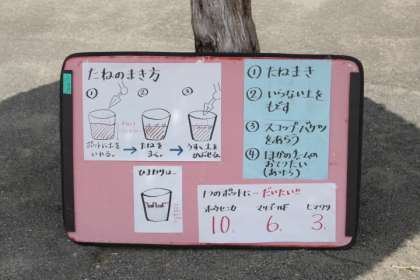 たねのまき方
①
②
③
ポットに土を
いれる。
たねを
まく。
うすく土を
かぶせる。
ひまわりは…
① たねまき
② いらない土を
もどす
③ スコップバケツ
をあらう
④ ほかのチームの
おてつだい
1つのポットに…だいたい!!
ホウセンカ
マリーゴールド
ヒマワリ
10.
6.
3.